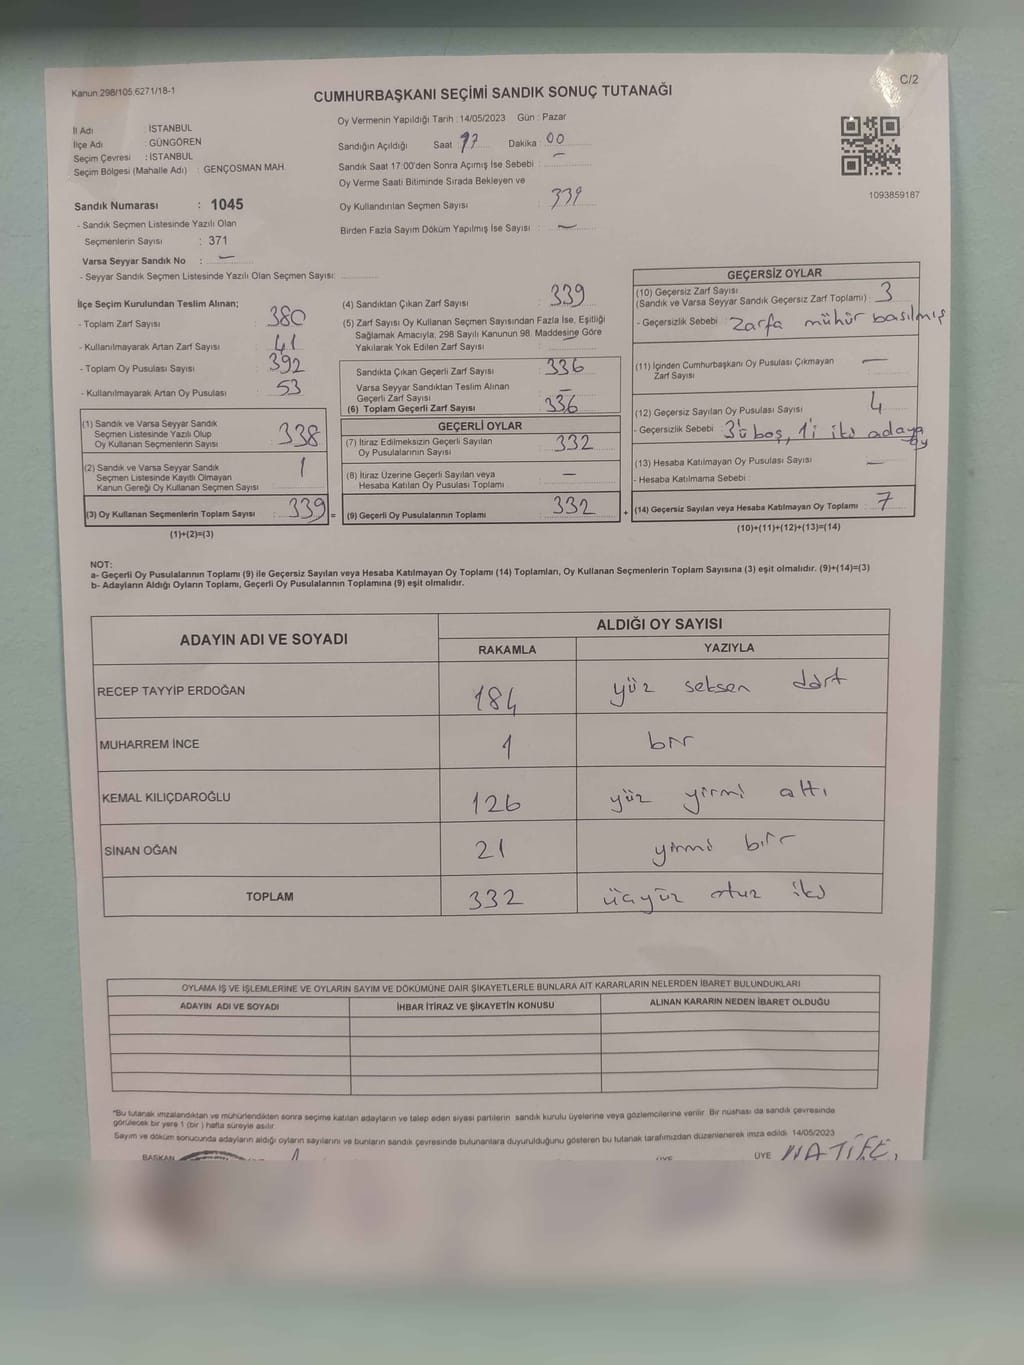 Kanun:298/105,6271/18-1
C/2
CUMHURBAŞKANI SEÇİMİ SANDIK SONUÇ TUTANAĞI
İl Adı : İSTANBUL
İlçe Adı : GÜNGÖREN
Seçim Çevresi : İSTANBUL
Seçim Bölgesi (Mahalle Adı) : GENÇOSMAN MAH.
Sandık Numarası : 1045
- Sandık Seçmen Listesinde Yazılı Olan
Seçmenlerin Sayısı : 371
Varsa Seyyar Sandık No : —
- Seyyar Sandık Seçmen Listesinde Yazılı Olan Seçmen Sayısı:
Oy Vermenin Yapıldığı Tarih : 14/05/2023 Gün : Pazar
Sandığın Açıldığı Saat : 17 Dakika : 00
Sandık Saat 17:00'den Sonra Açımış İse Sebebi : —
Oy Verme Saati Bitiminde Sırada Bekleyen ve
Oy Kullandırılan Seçmen Sayısı : 339
Birden Fazla Sayım Döküm Yapılmış İse Sayısı : —
1093859187
İlçe Seçim Kurulundan Teslim Alınan;
- Toplam Zarf Sayısı : 380
- Kullanılmayarak Artan Zarf Sayısı : 41
- Toplam Oy Pusulası Sayısı : 392
- Kullanılmayarak Artan Oy Pusulası : 53
(1) Sandık ve Varsa Seyyar Sandık
Seçmen Listesinde Yazılı Olup
Oy Kullanan Seçmenlerin Sayısı : 338
(2) Sandık ve Varsa Seyyar Sandık
Seçmen Listesinde Kayıtlı Olmayan
Kanun Gereği Oy Kullanan Seçmen Sayısı : 1
(3) Oy Kullanan Seçmenlerin Toplam Sayısı : 339 =
(1)+(2)=(3)
(4) Sandıktan Çıkan Zarf Sayısı : 339
(5) Zarf Sayısı Oy Kullanan Seçmen Sayısından Fazla İse, Eşitliği
Sağlamak Amacıyla, 298 Sayılı Kanunun 98. Maddesine Göre
Yakılarak Yok Edilen Zarf Sayısı : —
Sandıkta Çıkan Geçerli Zarf Sayısı : 336
Varsa Seyyar Sandıktan Teslim Alınan
Geçerli Zarf Sayısı : —
(6) Toplam Geçerli Zarf Sayısı : 336
GEÇERLİ OYLAR
(7) İtiraz Edilmeksizin Geçerli Sayılan
Oy Pusulalarının Sayısı : 332
(8) İtiraz Üzerine Geçerli Sayılan veya
Hesaba Katılan Oy Pusulası Toplamı : —
(9) Geçerli Oy Pusulalarının Toplamı : 332 +
GEÇERSİZ OYLAR
(10) Geçersiz Zarf Sayısı
(Sandık ve Varsa Seyyar Sandık Geçersiz Zarf Toplamı) : 3
- Geçersizlik Sebebi : Zarfa mühür basılmış
(11) İçinden Cumhurbaşkanı Oy Pusulası Çıkmayan
Zarf Sayısı : —
(12) Geçersiz Sayılan Oy Pusulası Sayısı : 4
- Geçersizlik Sebebi : 3'ü boş, 1'i iki adaya oy
(13) Hesaba Katılmayan Oy Pusulası Sayısı : —
- Hesaba Katılmama Sebebi :
(14) Geçersiz Sayılan veya Hesaba Katılmayan Oy Toplamı : 7
(10)+(11)+(12)+(13)=(14)
NOT:
a- Geçerli Oy Pusulalarının Toplamı (9) ile Geçersiz Sayılan veya Hesaba Katılmayan Oy Toplamı (14) Toplamları, Oy Kullanan Seçmenlerin Toplam Sayısına (3) eşit olmalıdır. (9)+(14)=(3)
b- Adayların Aldığı Oyların Toplamı, Geçerli Oy Pusulalarının Toplamına (9) eşit olmalıdır.
ADAYIN ADI VE SOYADI ALDIĞI OY SAYISI
RAKAMLA YAZIYLA
RECEP TAYYİP ERDOĞAN 184 yüz seksen dört
MUHARREM İNCE 1 bir
KEMAL KILIÇDAROĞLU 126 yüz yirmi altı
SİNAN OĞAN 21 yirmi bir
TOPLAM 332 üçyüz otuz iki
OYLAMA İŞ VE İŞLEMLERİNE VE OYLARIN SAYIM VE DÖKÜMÜNE DAİR ŞİKAYETLERLE BUNLARA AİT KARARLARIN NELERDEN İBARET BULUNDUKLARI
ADAYIN ADI VE SOYADI İHBAR İTİRAZ VE ŞİKAYETİN KONUSU ALINAN KARARIN NEDEN İBARET OLDUĞU
*Bu tutanak imzalandıktan ve mühürlendikten sonra seçime katılan adayların ve talep eden siyasi partilerin sandık kurulu üyelerine veya gözlemcilerine verilir. Bir nüshası da sandık çevresinde
görülecek bir yere 1 (bir) hafta süreyle asılır.
Sayım ve döküm sonucunda adayların aldığı oyların sayılarını ve bunların sandık çevresinde bulunanlara duyurulduğunu gösteren bu tutanak tarafımızdan düzenlenerek imza edildi. 14/05/2023
BAŞKAN ÜYE ÜYE